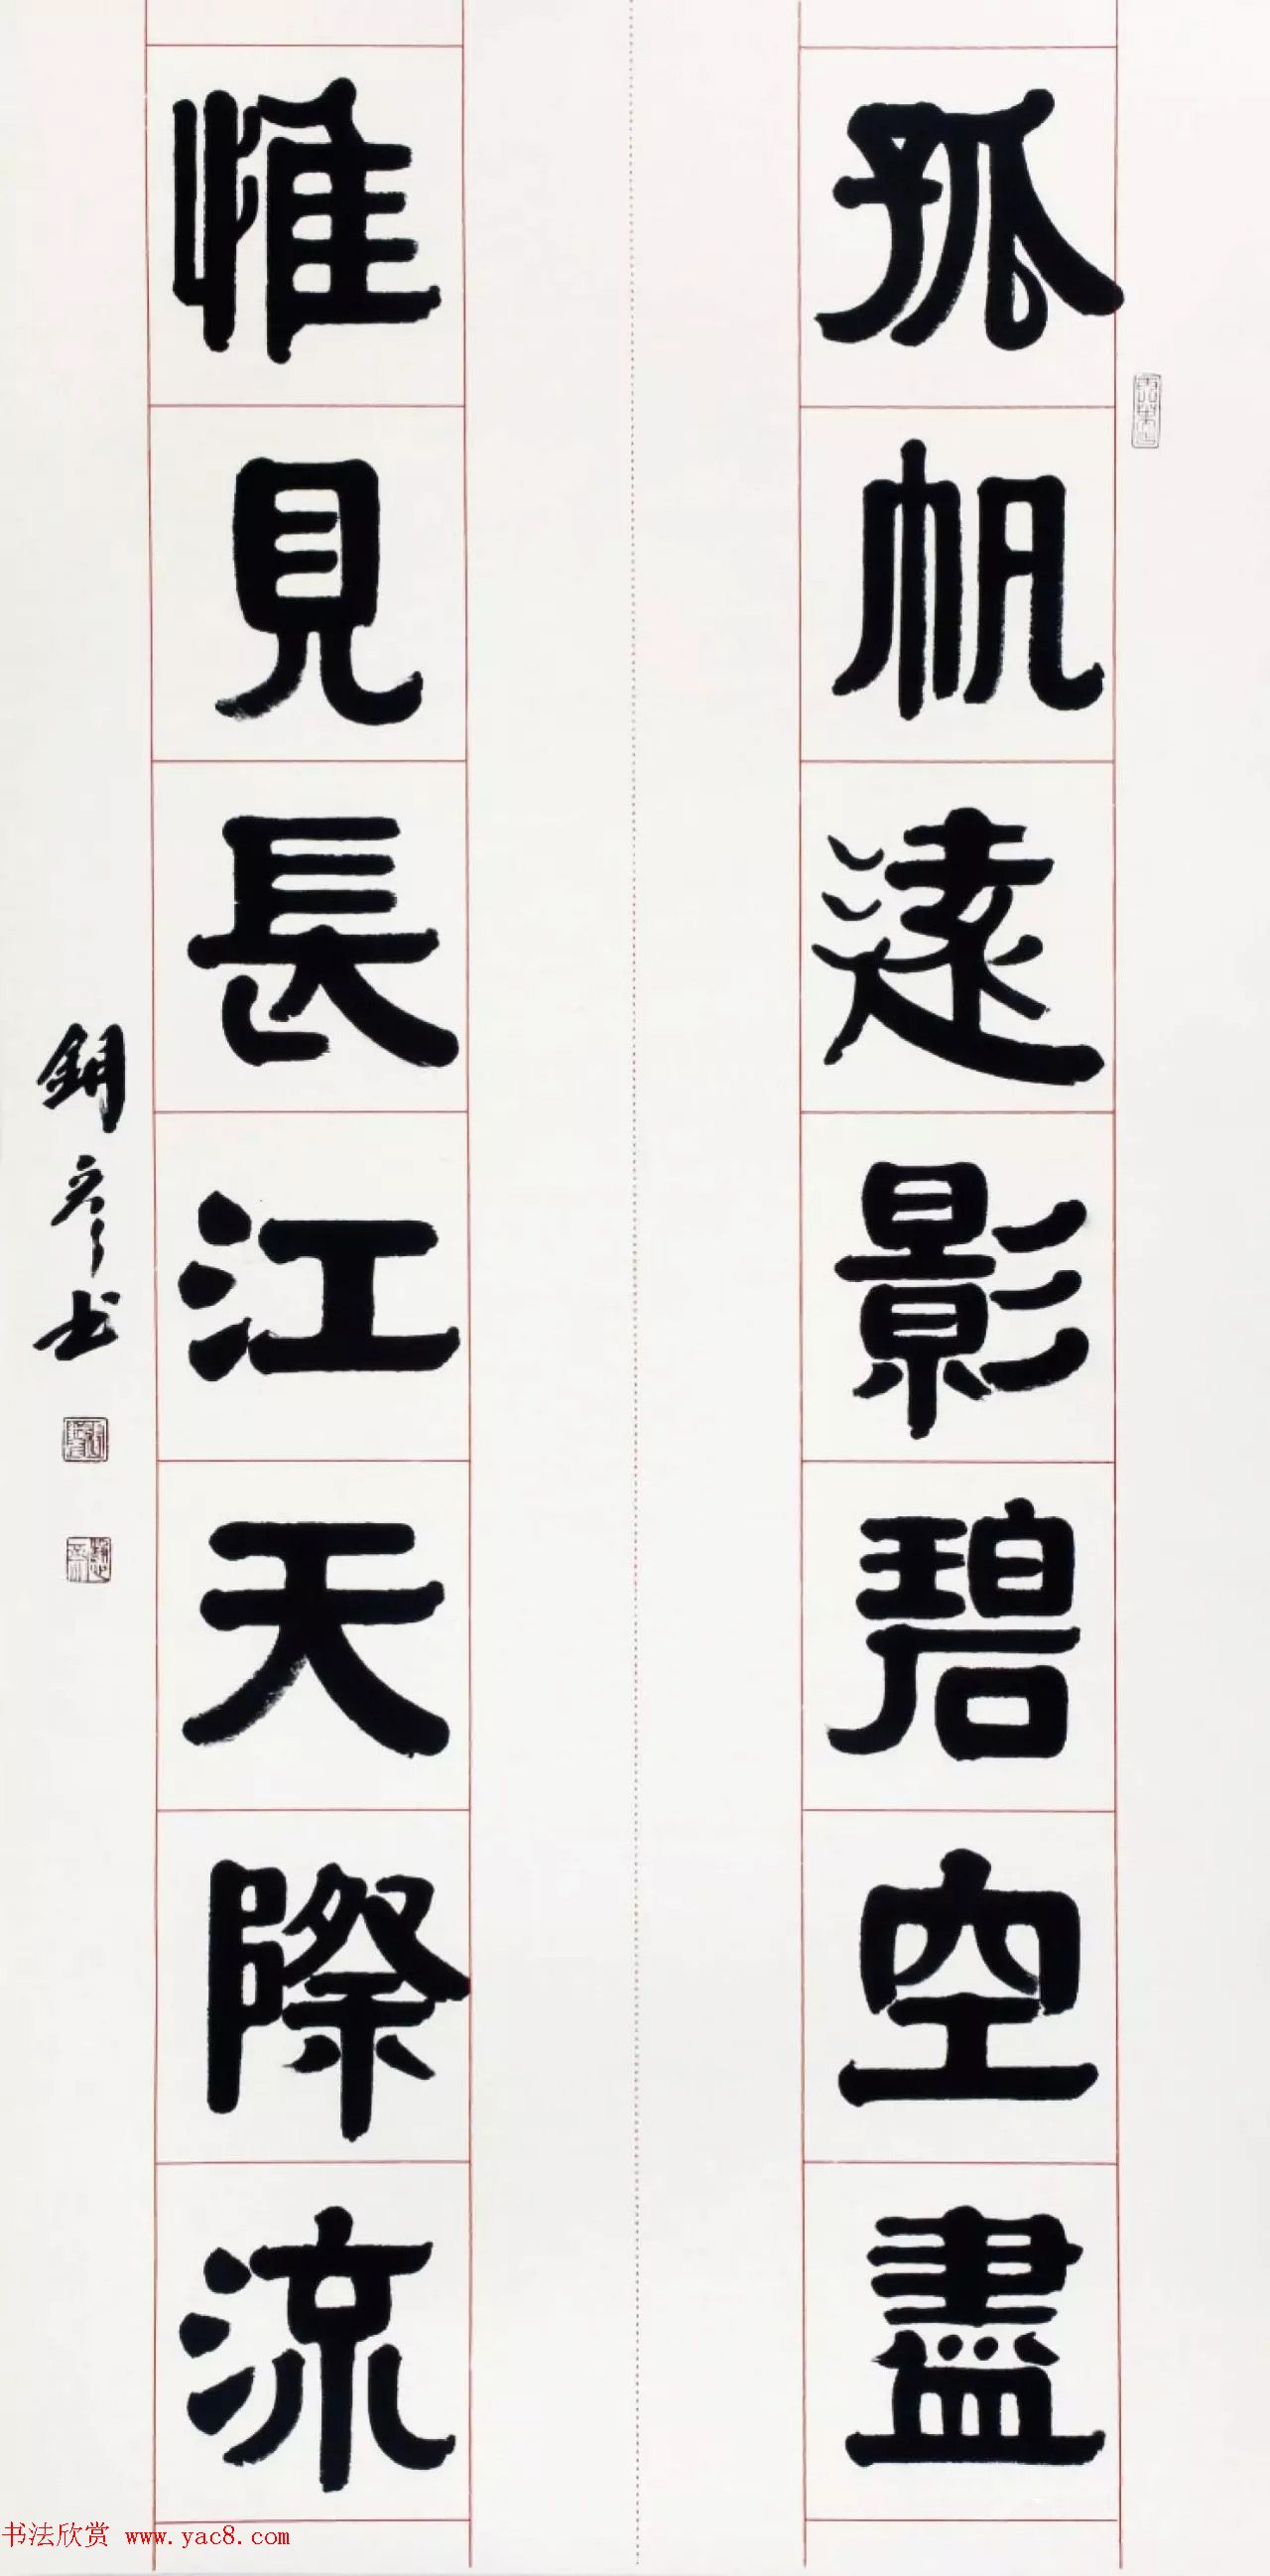 孤帆遠影碧空盡
惟見長江天際流
書法欣赏 www.yac8.com